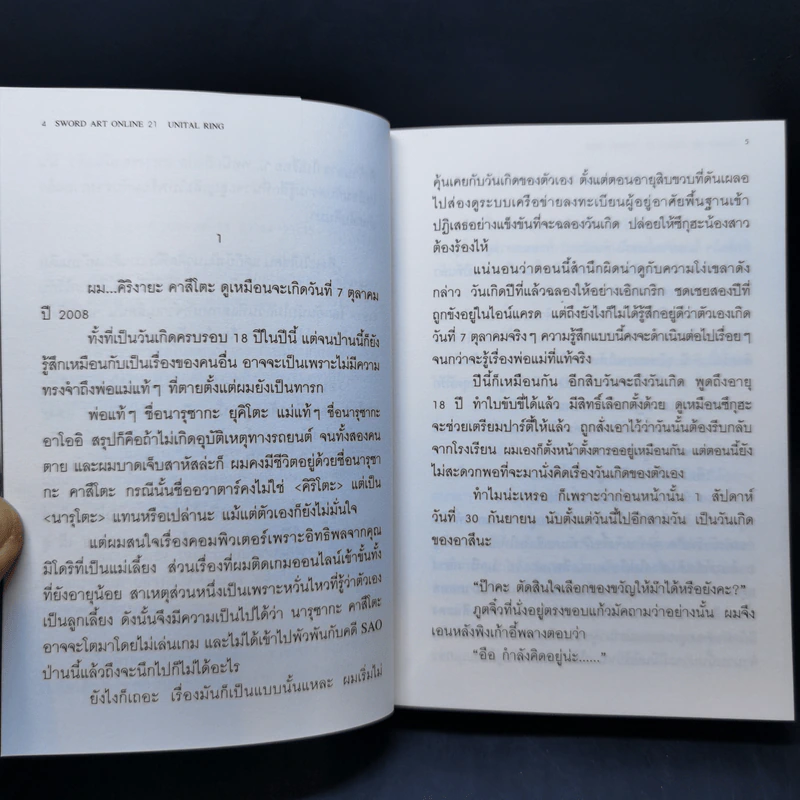 4 SWORD ART ONLINE 21 UNITAL RING
1
ผม...คิริงายะ คาสึโตะ ดูเหมือนจะเกิดวันที่ 7 ตุลาคม
ปี 2008
ทั้งที่เป็นวันเกิดครบรอบ 18 ปีในปีนี้ แต่จนป่านนี้ก็ยัง
รู้สึกเหมือนกับเป็นเรื่องของคนอื่น อาจจะเป็นเพราะไม่มีความ
ทรงจำถึงพ่อแม่แท้ๆ ที่ตายตั้งแต่ผมยังเป็นทารก
พ่อแท้ๆ ชื่อนารุซากะ ยุคิโตะ แม่แท้ๆ ชื่อนารุซากะ
อาโออิ สรุปก็คือถ้าไม่เกิดอุบัติเหตุทางรถยนต์ จนทั้งสองคน
ตาย และผมบาดเจ็บสาหัสล่ะก็ ผมคงมีชีวิตอยู่ด้วยชื่อนารุซา
กะ คาสึโตะ กรณีนั้นชื่ออวาตาร์คงไม่ใช่ <คิริโตะ> แต่เป็น
<นารุโตะ> แทนหรือเปล่านะ แม้แต่ตัวเองก็ยังไม่มั่นใจ
แต่ผมสนใจเรื่องคอมพิวเตอร์เพราะอิทธิพลจากคุณ
มิโดริที่เป็นแม่เลี้ยง ส่วนเรื่องที่ผมติดเกมออนไลน์เข้าขั้นทั้ง
ที่ยังอายุน้อย สาเหตุส่วนหนึ่งเป็นเพราะหวั่นไหวที่รู้ว่าตัวเอง
เป็นลูกเลี้ยง ดังนั้นจึงมีความเป็นไปได้ว่า นารุซากะ คาสึโตะ
อาจจะโตมาโดยไม่เล่นเกม และไม่ได้เข้าไปพัวพันกับคดี SAO
ป่านนี้แล้วถึงจะนึกไปก็ไม่ได้อะไร
ยังไงก็เถอะ เรื่องมันก็เป็นแบบนั้นแหละ ผมเริ่มไม่
5
คุ้นเคยกับวันเกิดของตัวเอง ตั้งแต่ตอนอายุสิบขวบที่ดันเผลอ
ไปส่องดูระบบเครือข่ายลงทะเบียนผู้อยู่อาศัยพื้นฐานเข้า
ปฏิเสธอย่างแข็งขันที่จะฉลองวันเกิด ปล่อยให้ซึกุฮะน้องสาว
ต้องร้องไห้
แน่นอนว่าตอนนี้สำนึกผิดน่าดูกับความโง่เขลาดัง
กล่าว วันเกิดปีที่แล้วฉลองให้อย่างเอิกเกริก ชดเชยสองปีที่
ถูกขังอยู่ในไอน์แครด แต่ถึงยังไงก็ไม่ได้รู้สึกอยู่ดีว่าตัวเองเกิด
วันที่ 7 ตุลาคมจริงๆ ความรู้สึกแบบนี้คงจะดำเนินต่อไปเรื่อยๆ
จนกว่าจะรู้เรื่องพ่อแม่ที่แท้จริง
ปีนี้ก็เหมือนกัน อีกสิบวันจะถึงวันเกิด พูดถึงอายุ
18 ปี ทำใบขับขี่ได้แล้ว มีสิทธิ์เลือกตั้งด้วย ดูเหมือนซึกุฮะ
จะช่วยเตรียมปาร์ตี้ให้แล้ว ถูกสั่งเอาไว้ว่าวันนั้นต้องรีบกลับ
จากโรงเรียน ผมเองก็ตั้งหน้าตั้งตารออยู่เหมือนกัน แต่ตอนนี้ยัง
ไม่สะดวกพอที่จะมานั่งคิดเรื่องวันเกิดของตัวเอง
ทำไมน่ะเหรอ ก็เพราะว่าก่อนหน้านั้น 1 สัปดาห์
วันที่ 30 กันยายน นับตั้งแต่วันนี้ไปอีกสามวัน เป็นวันเกิด
ของอาสึนะ
"ป๊าคะ ตัดสินใจเลือกของขวัญให้ม๊าได้หรือยังคะ?"
ภูตจิ๋วที่นั่งอยู่ตรงขอบแก้วมัคถามว่าอย่างนั้น ผมจึง
เอนหลังพิงเก้าอี้พลางตอบว่า
"อือ กำลังคิดอยู่น่ะ......"